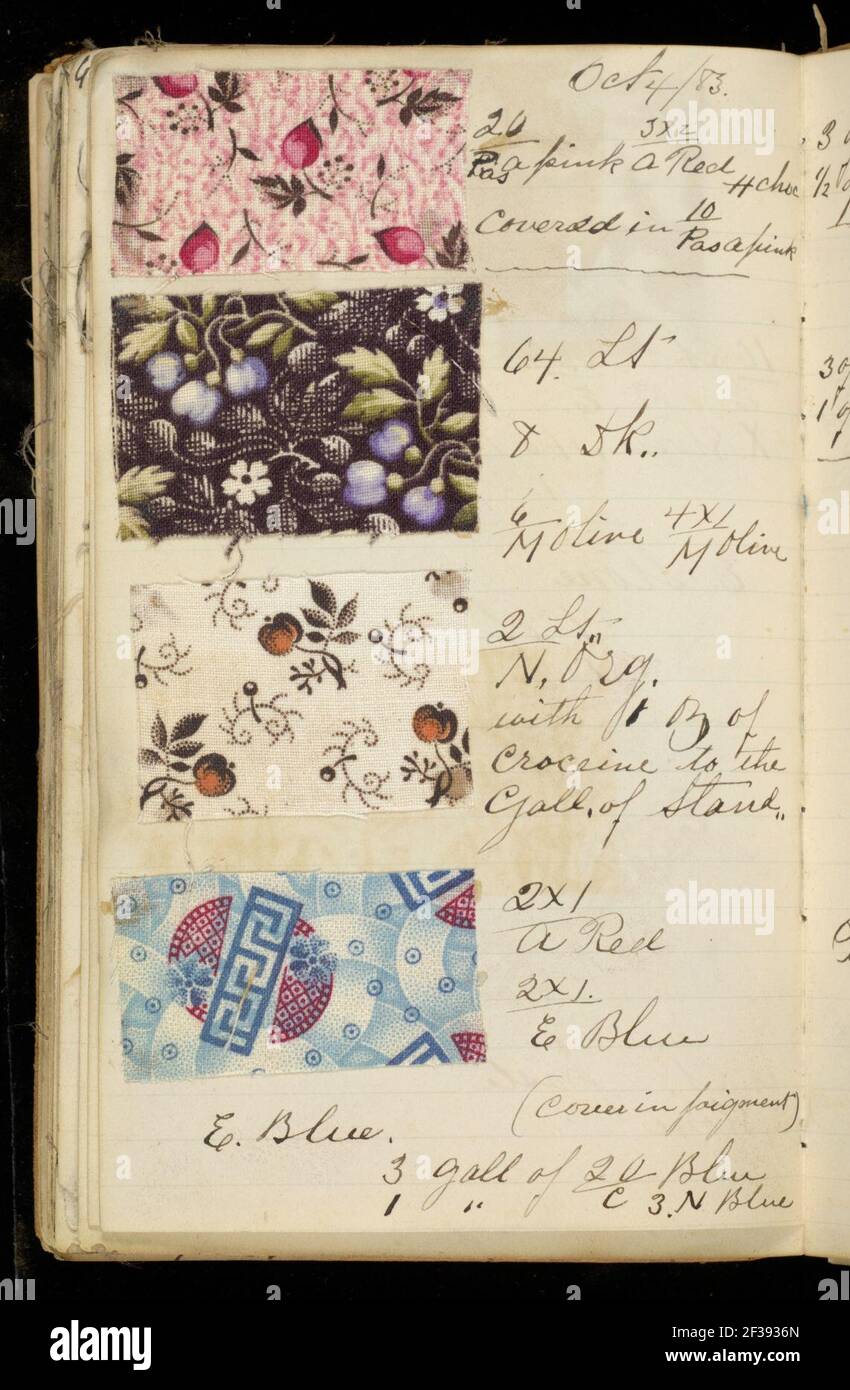 Oct 4/83.
20 3x2
Pas a pink A Red
H choc
Covered in 10
Pas a pink
64. Lt
8 Dk..
6 4x1
M Olive M Olive
2 Lt "
N, Org.
with 1 Oz of
Croceine to the
Gall. of Stand "
2x1
A Red
2x1.
E Blue
(Cover in paigment)
E. Blue.
3 Gall of 20 Blue
C
1 " 3. N Blue
3
1/2
1
3 of
1
alamy
Image ID: 2F3936N
www.alamy.com